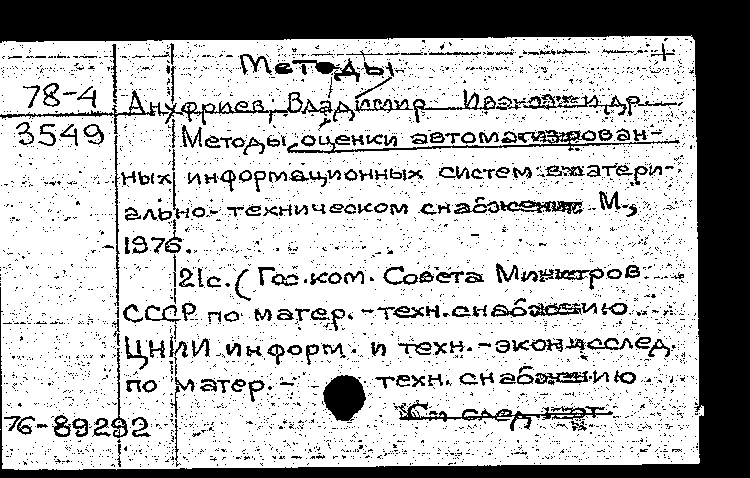 Методы
78-4 Ануфриев, Владимир Иванович и др.
3549 Методы оценки автоматизирован-
ных информационных систем в матери-
ально-техническом снабжении М.,
1976.
21с. (Гос.ком. Совета Министров
СССР по матер.-техн.снабжению
ЦНИИ информ. и техн.-экон.исслед.
по матер.- техн. снабжению
См след кат
76-89292